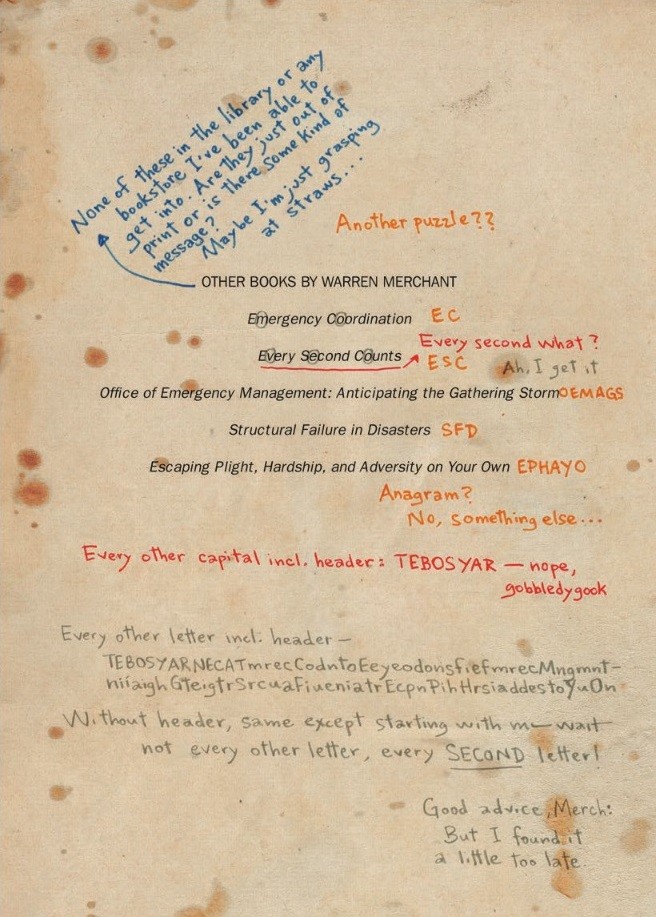 None of these in the library or any
bookstore I've been able to
get into. Are they just out of
print or is there some kind of
message?
Maybe I'm just grasping
at straws...
Another puzzle??
OTHER BOOKS BY WARREN MERCHANT
Emergency Coordination EC
Every second what?
Every Second Counts ESC Ah, I get it
Office of Emergency Management: Anticipating the Gathering Storm OEMAGS
Structural Failure in Disasters SFD
Escaping Plight, Hardship, and Adversity on Your Own EPHAYO
Anagram?
No, something else...
Every other capital incl. header: TEBOSYAR — nope,
gobbledygook
Every other letter incl. header —
TEBOSYARNECATmrecCodntoEeyeodonsfiefmrecMngmnt-
niiaighGTeigtrSrcuaFiueniatrEcpnPihHrsiaddestoYuOn
Without header, same except starting with m — wait
not every other letter, every SECOND letter!
Good advice, Merch:
But I found it
a little too late.